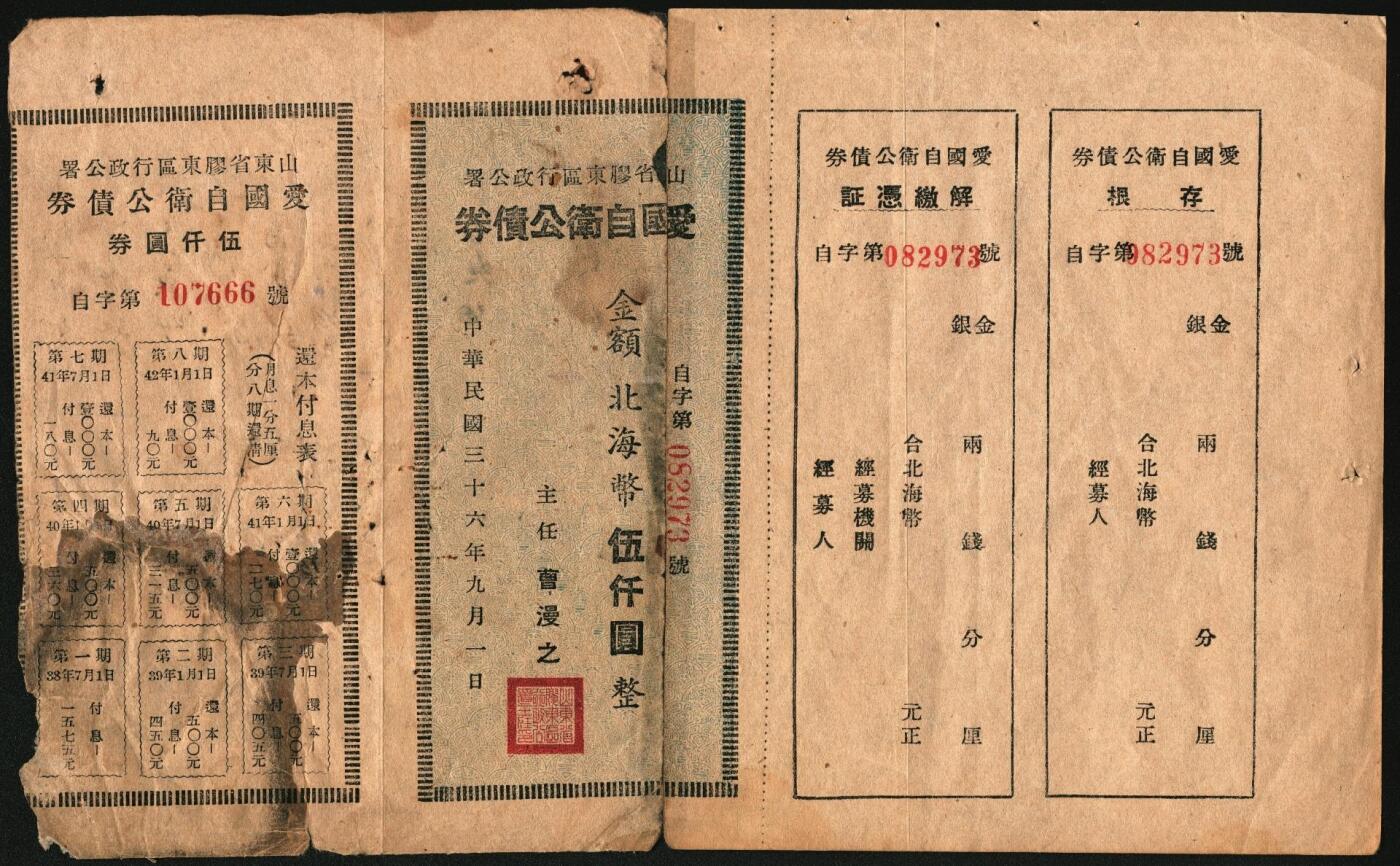 愛國自衛公債券
存根
自字第082973號
金銀
兩 錢 分 厘
合北海幣 元正
經募人
愛國自衛公債券
解繳憑証
自字第082973號
金銀
兩 錢 分 厘
合北海幣 元正
經募機關
經募人
山東省膠東區行政公署
愛國自衛公債券
自字第082973號
金額 北海幣伍仟圓整
主任 曹漫之
中華民國三十六年九月一日
山東省膠東區行政公署
愛國自衛公債券
伍仟圓券
自字第107666號
還本付息表
(月息一分五厘
分八期還清)
第八期
42年1月1日
還本—壹〇〇〇元
付息—九〇元
第七期
41年7月1日
還本—壹〇〇〇元
付息—一八〇元
第六期
41年1月1日
還本—壹〇〇〇元
付息—二七〇元
第五期
40年7月1日
還本—五〇〇元
付息—三一五元
第四期
40年1月1日
還本—五〇〇元
付息—三六〇元
第三期
39年7月1日
還本—五〇〇元
付息—四〇五元
第二期
39年1月1日
還本—五〇〇元
付息—四五〇元
第一期
38年7月1日
付息—一五七五元